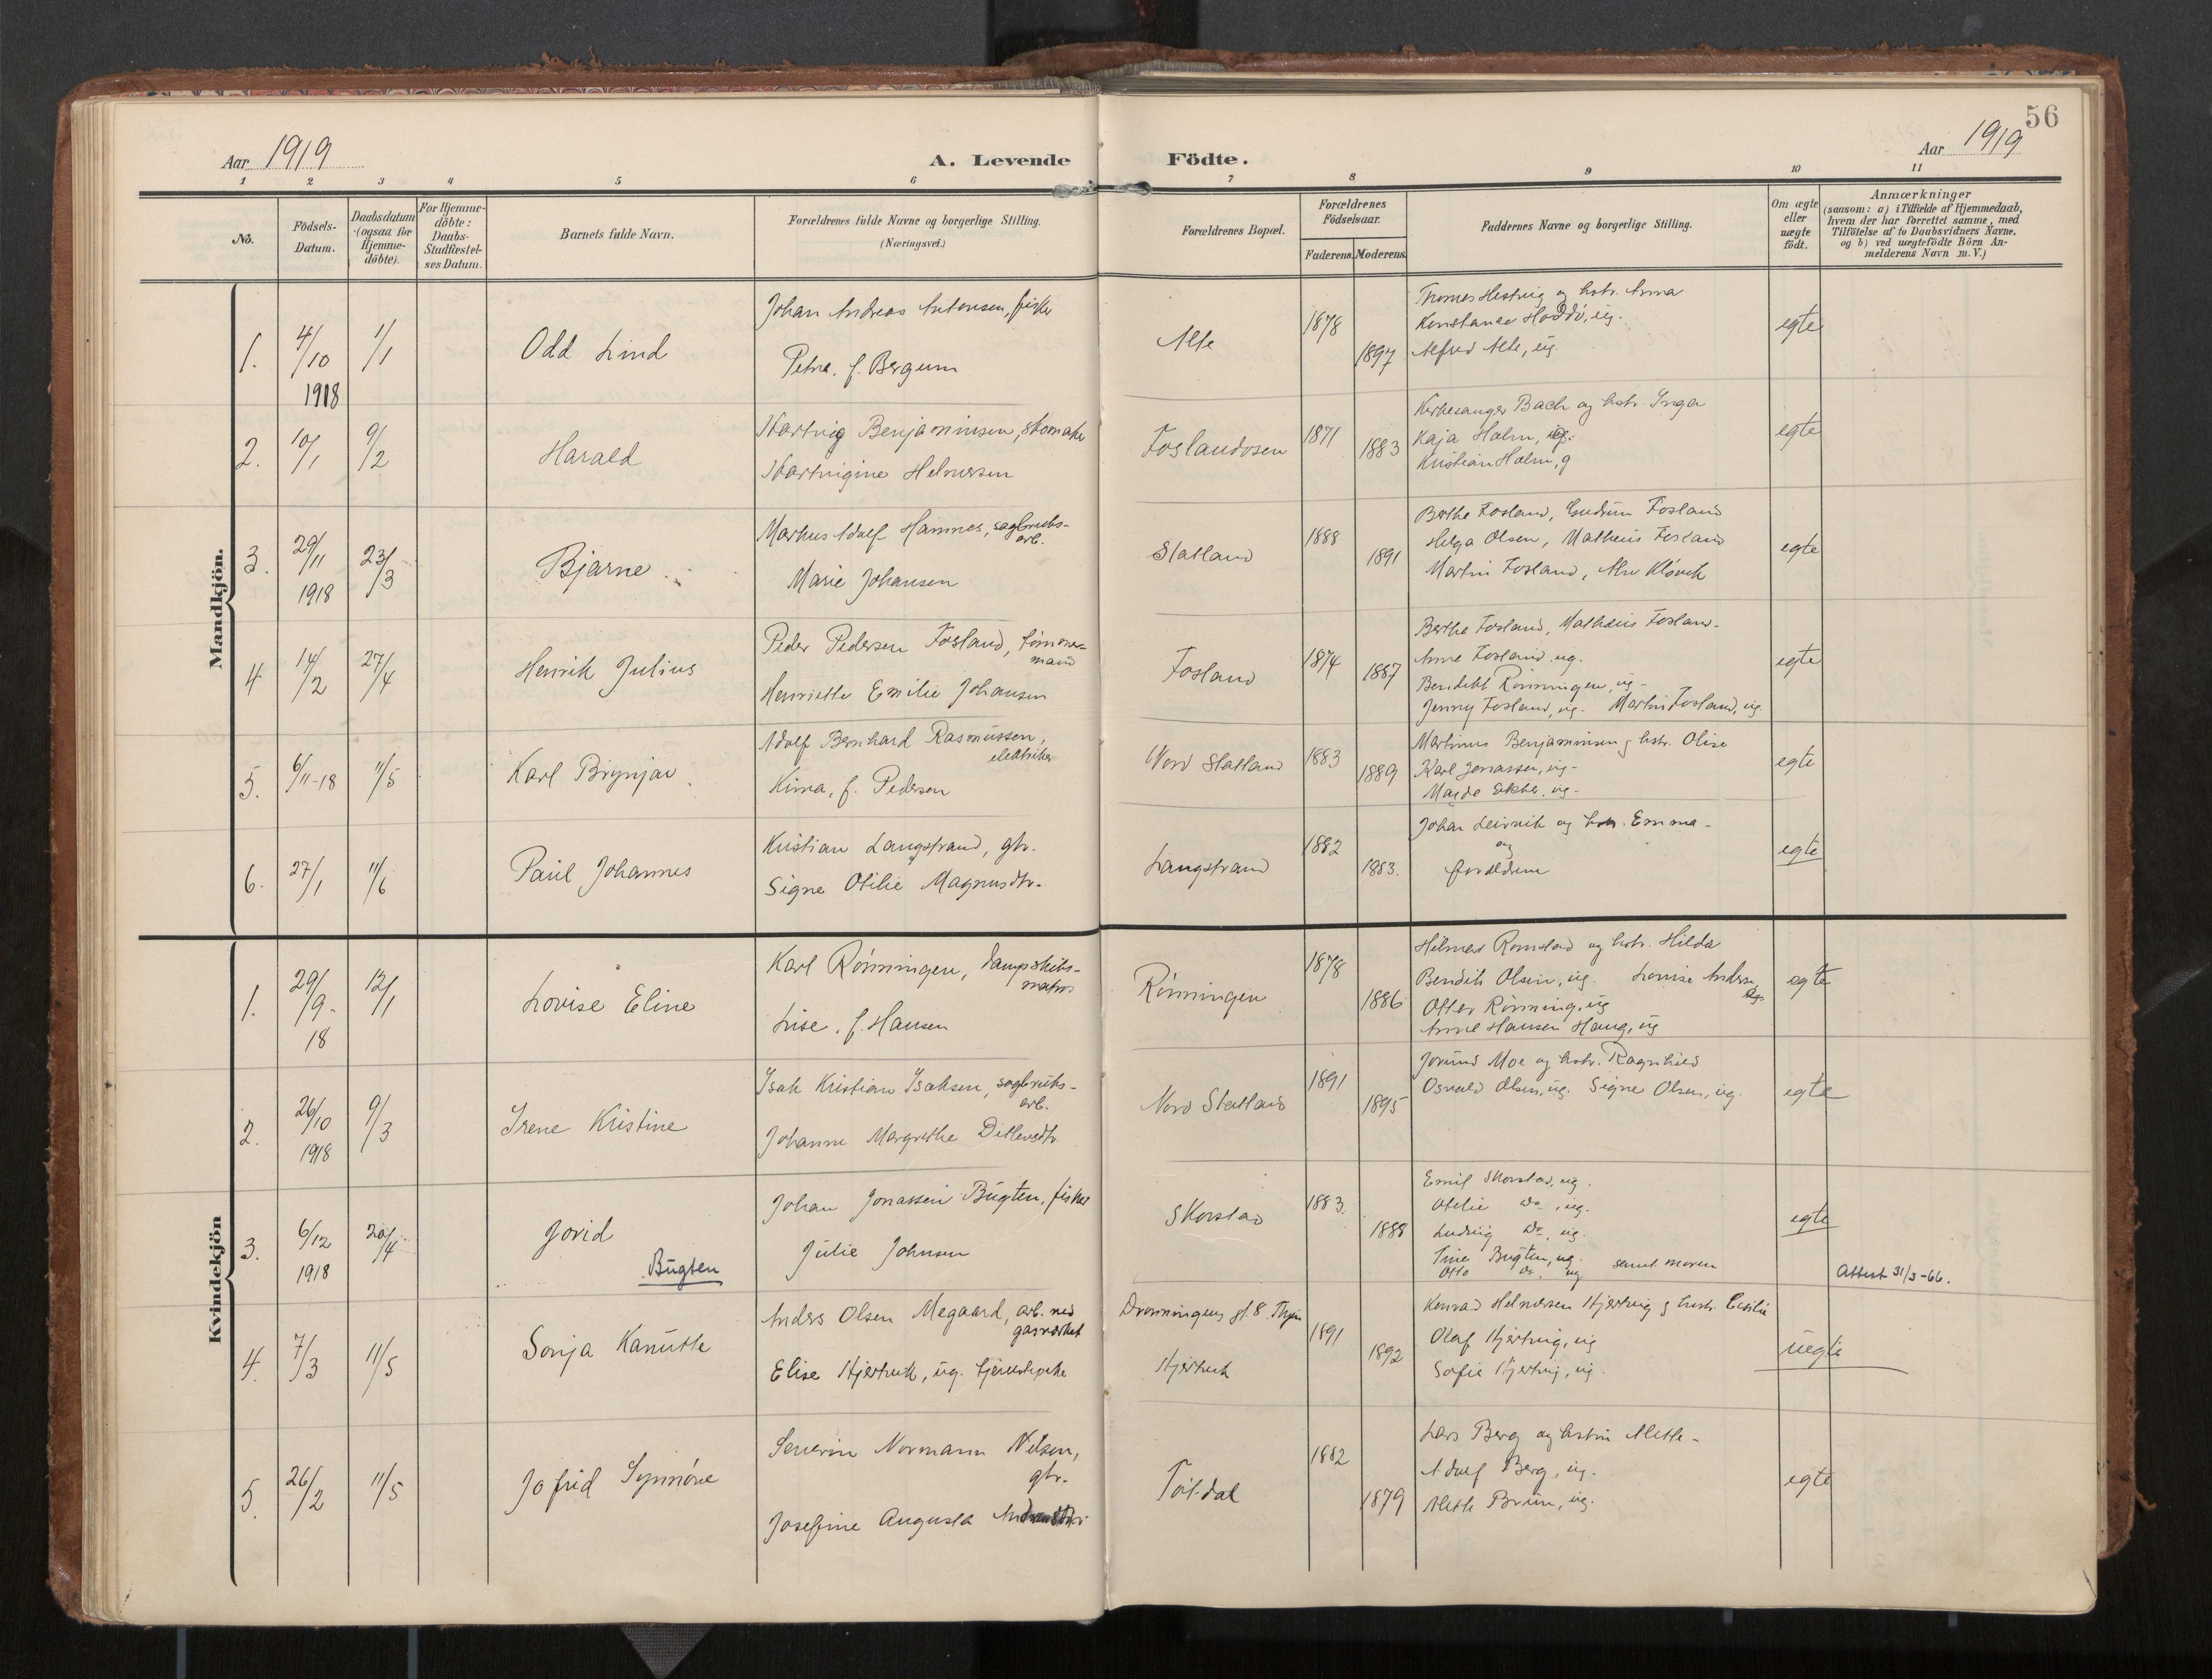 56
Aar 1919
A. Levende Födte.
Aar 1919
1 2 3 4 5 6 7 8 9 10 11
No.
Födsels-Datum.
Daabsdatum (ogsaa for Hjemme-döbte).
For Hjemme-döbte: Daabs-Stadfæstel-ses Datum.
Barnets fulde Navn.
Forældrenes fulde Navne og borgerlige Stilling.
(Næringsvei.)
Forældrenes Bopæl.
Forældrenes Födselsaar.
Faderens. Moderens.
Faddernes Navne og borgerlige Stilling.
Om ægte eller uægte födt.
Anmærkninger
(saasom: a) i Tilfælde af Hjemmedaab,
hvem der har forrettet samme, med
Tilföielse af to Daabsvidners Navne.
og b) ved uægtefödte Börn An-
melderens Navn m. V.)
Mandkjön.
1. 4/10 1918 1/1 Odd Lind
Johan Andreas Antonsen, fisker
Petra, f. Bergum
Alte 1878 1897
og hstr. Anna
Konstanse Hoddö, ug.
Alfred Alte, ug.
egte
2. 10/1 9/2 Harald
Hartvig Benjaminsen, skomaker
Hartvigine Helmersen
Foslandosen 1871 1883
Kirkesanger Bach og hstr. Inga
Kaja Holm, ug.
Kristian Holm, g
egte
3. 29/11 1918 23/3 Bjarne
Markus Adolf Hannes, sagbruks-
arb.
Marie Johansen
Statland 1888 1891
Berthe Fosland, Gudrun Fosland
Helga Olsen, Matheus Fosland
Martin Fosland, Alv Klövik
egte
4 14/2 27/4 Henrik Julius
Peder Pedersen Fosland, tömmer-
mand
Henriette Emilie Johansen
Fosland 1874 1887
Berthe Fosland, Matheus Fosland.
Anne Fosland, ug.
Bendikt Rönningen, ug.
Jenny Fosland, ug. Martin Fosland, ug.
egte
5. 6/11-18 11/5 Karl Brynjar.
Adolf Bernhard Rasmussen,
elektriker
Kima, f. Pedersen
Nord Statland 1883 1889
Martinus Benjaminsen g hstr. Olise
Karl Jonassen, ug.
Magda, ug.
egte
6. 27/1 11/6 Paul Johannes
Kristian Langstrand, gbr.
Signe Otilie Magnusdtr.
Langstrand 1882 1883.
Johan Leirvik og hstr. Emma
og
forældrene
egte
Kvindekjön
1. 29/9-18 12/1 Lovise Eline
Karl Rönningen, dampskibs-
matros
Lise, f. Hansen
Rönningen 1878 1886
Hilmar Romstad og hstr. Hilda
Bendik Olsen, ug. Lovise Anders
Otter Rönning, ug
Anne Hansen Haug, ug
egte
2. 26/10 1918 9/3 Irene Kristine
Isak Kristian Isaksen, sagbruks-
arb.
Johanne Margrethe Ditlevsdtr.
Nord Statland 1891 1895
Jorund Moe og hstr. Ragnhild
Osvald Olsen, ug. Signe Olsen, ug.
egte
3. 6/12 1918 20/4 Jorid
Bugten
Johan Jonassen Bugten, fisker
Julie Johnsen
Skorstad 1883. 1888
Emil Skorstad, ug.
Otelie do, ug.
Ludvig do, ug.
Tine Bugten, ug.
Otto do. ug samt moren
egte
Attest 31/3-66.
4. 7/3 11/5 Sonja Kanutte
Anders Olsen Megaard, arb. ved
gasverket
Elise Hjertvik, ug. tjenestepike
Dronningens gt. 8. Thjem
Hjertvik
1891 1892
Konrad Helmersen Hjertvig g hustr. Cesilie
Olaf Hjertvig, ug
Sofie Hjertvig, ug.
uegte
5. 26/2 11/5 Jofrid Synnöve
Severin Normann Nilsen,
gbr.
Josefine Augusta
Tötdal 1882 1879
Lars Berg og hstru Mette
Adolf Berg, ug.
Mette Brun, ug.
egte